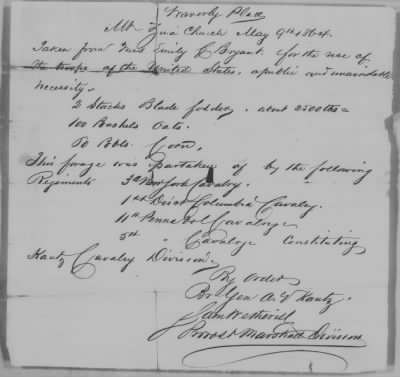 Waverly Place
Mt. Zina Church May 9th 1864.
Taken from Mrs Emily C Bryant. for the use of
the troops of the United States, a public and unavoidable
necessity.
2 Stacks Blade fodder. about 2500 lbs =
100 Bushels Oats.
Bbls. Corn.
This forage was partaken of by the following
Regiments 3d New York Cavalry. "
1st Dist Columbia Cavalry.
11th Penna Vol Cavalry
5th " Cavalry Constituting
Kautz Cavalry Division.
By Order
Br. Gen A. V Kautz.
Sam Wetherill
Provost Marshall Division